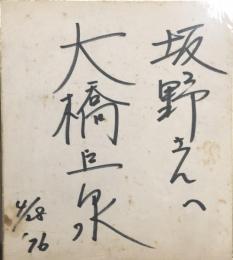 坂野さんへ
大橋巨泉
4/28
'76